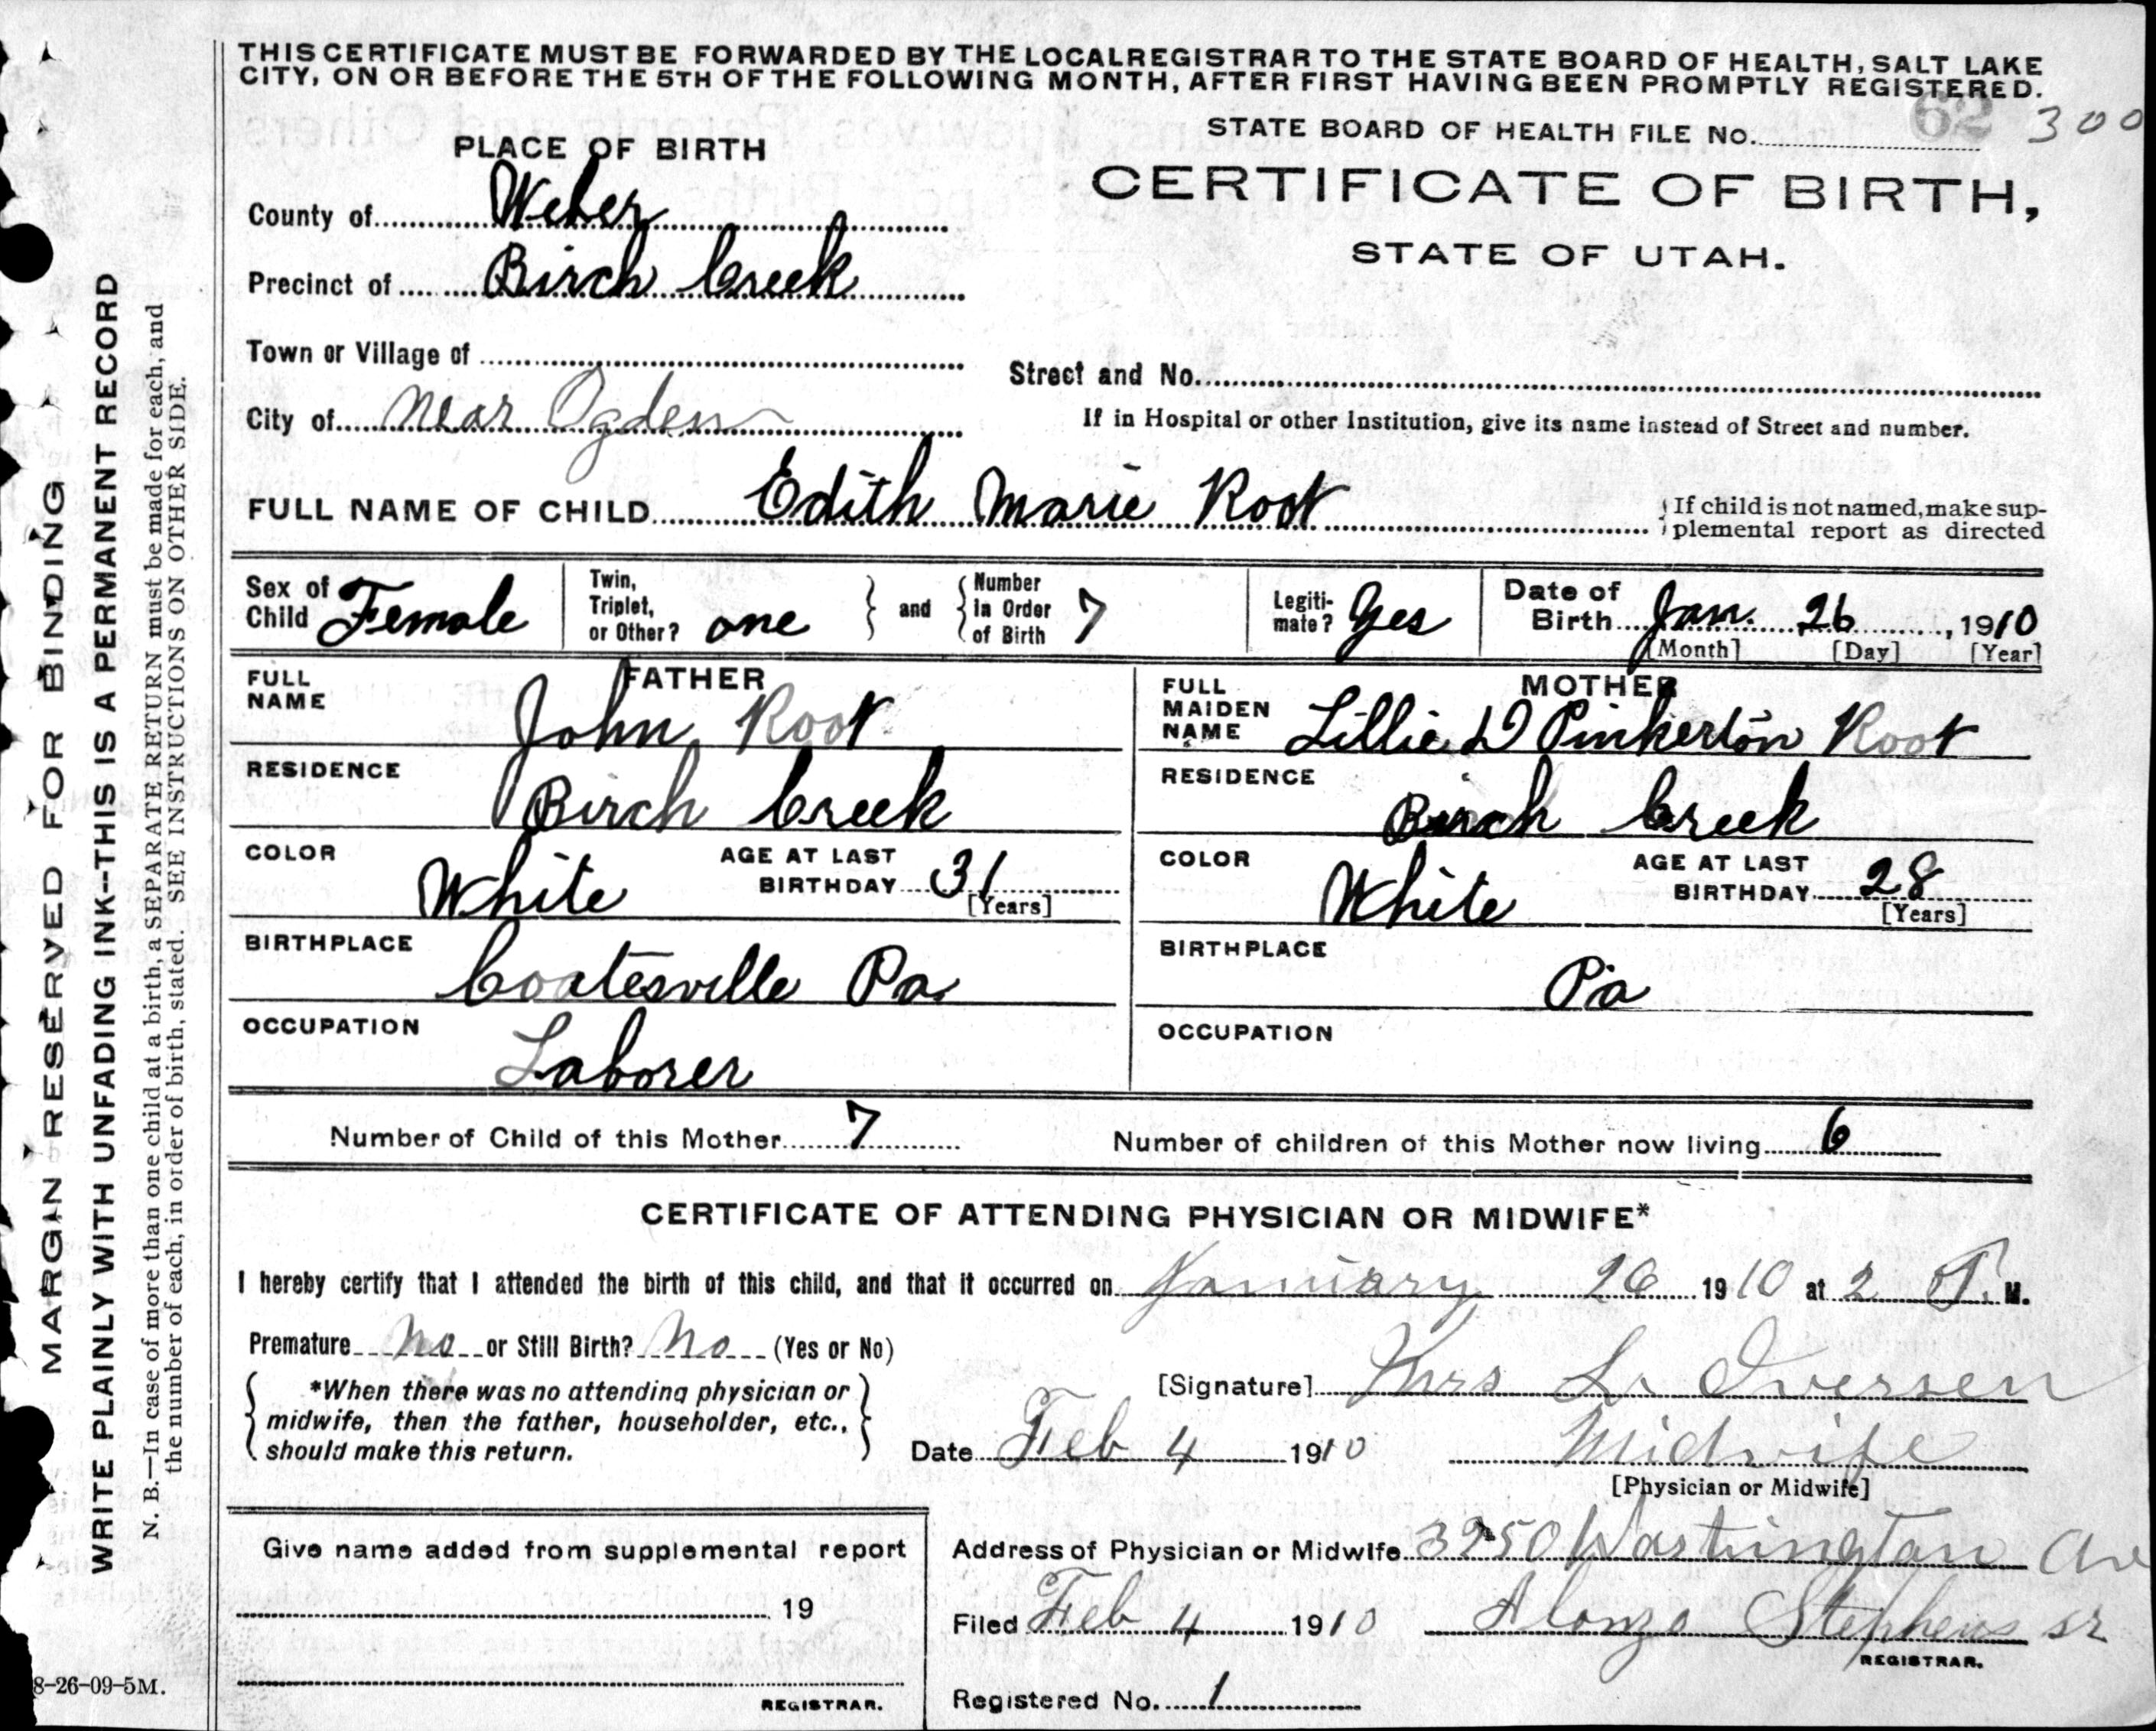 THIS CERTIFICATE MUST BE FORWARDED BY THE LOCAL REGISTRAR TO THE STATE BOARD OF HEALTH, SALT LAKE
CITY, ON OR BEFORE THE 5TH OF THE FOLLOWING MONTH, AFTER FIRST HAVING BEEN PROMPTLY REGISTERED.
STATE BOARD OF HEALTH FILE No. 62 300
PLACE OF BIRTH
CERTIFICATE OF BIRTH,
STATE OF UTAH.
County of Weber
Precinct of Birch Creek
Town or Village of
Street and No.
City of near Ogden
If in Hospital or other Institution, give its name instead of Street and number.
FULL NAME OF CHILD Edith Marie Root
If child is not named, make sup-
plemental report as directed
Sex of Child Female
Twin, Triplet, or Other? one
and
Number in Order of Birth 7
Legiti-mate? Yes
Date of Birth Jan. 26, 1910
[Month] [Day] [Year]
FATHER
FULL NAME John Root
RESIDENCE Birch Creek
COLOR White
AGE AT LAST BIRTHDAY 31
[Years]
BIRTHPLACE Coatesville Pa.
OCCUPATION Laborer
MOTHER
FULL MAIDEN NAME Lillie D Pinkerton Root
RESIDENCE Birch Creek
COLOR White
AGE AT LAST BIRTHDAY 28
[Years]
BIRTHPLACE Pa
OCCUPATION
Number of Child of this Mother 7
Number of children of this Mother now living 6
CERTIFICATE OF ATTENDING PHYSICIAN OR MIDWIFE*
I hereby certify that I attended the birth of this child, and that it occurred on January 26 1910 at 2 P. M.
Premature no or Still Birth? No (Yes or No)
*When there was no attending physician or
midwife, then the father, householder, etc.,
should make this return.
[Signature] Mrs L. Iversen
Date Feb 4 1910
Midwife
[Physician or Midwife]
Give name added from supplemental report
19
REGISTRAR.
Address of Physician or Midwife 3250 Washington Av
Filed Feb 4 1910 Alonzo Stephens sr
REGISTRAR.
Registered No. 1
MARGIN RESERVED FOR BINDING
WRITE PLAINLY WITH UNFADING INK--THIS IS A PERMANENT RECORD
N. B.—In case of more than one child at a birth, a SEPARATE RETURN must be made for each, and
the number of each, in order of birth, stated. SEE INSTRUCTIONS ON OTHER SIDE.
8-26-09-5M.